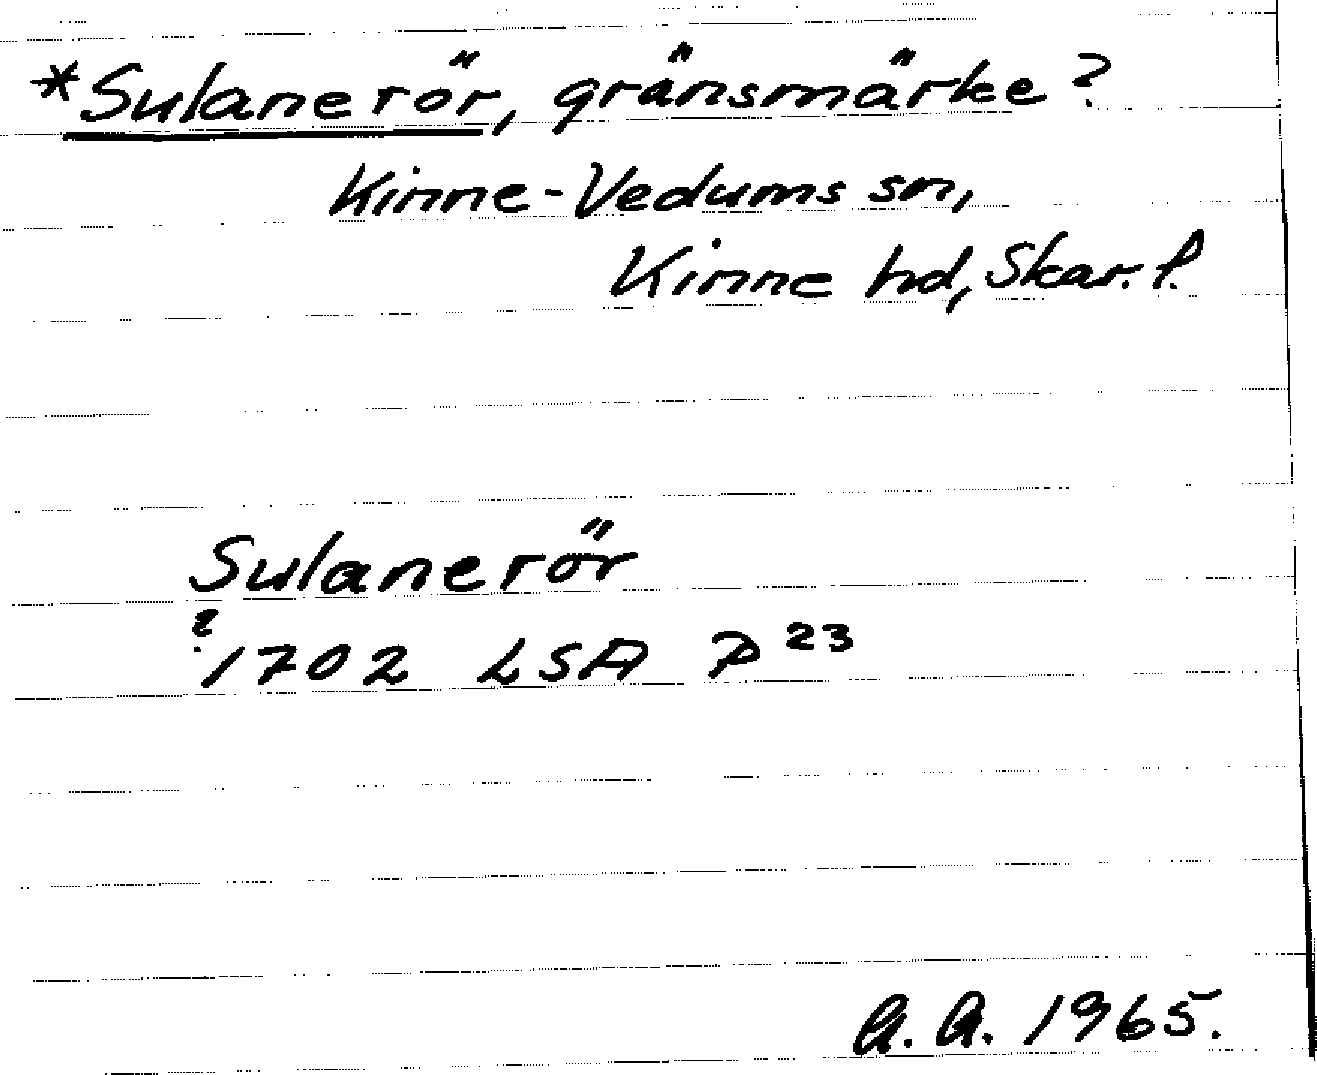 *Sulanerör, gränsmärke?
Kinne-Vedums sn,
Kinne hd, Skar. l.
Sulanerör
?
1702 LSA P 23
A. A. 1965.